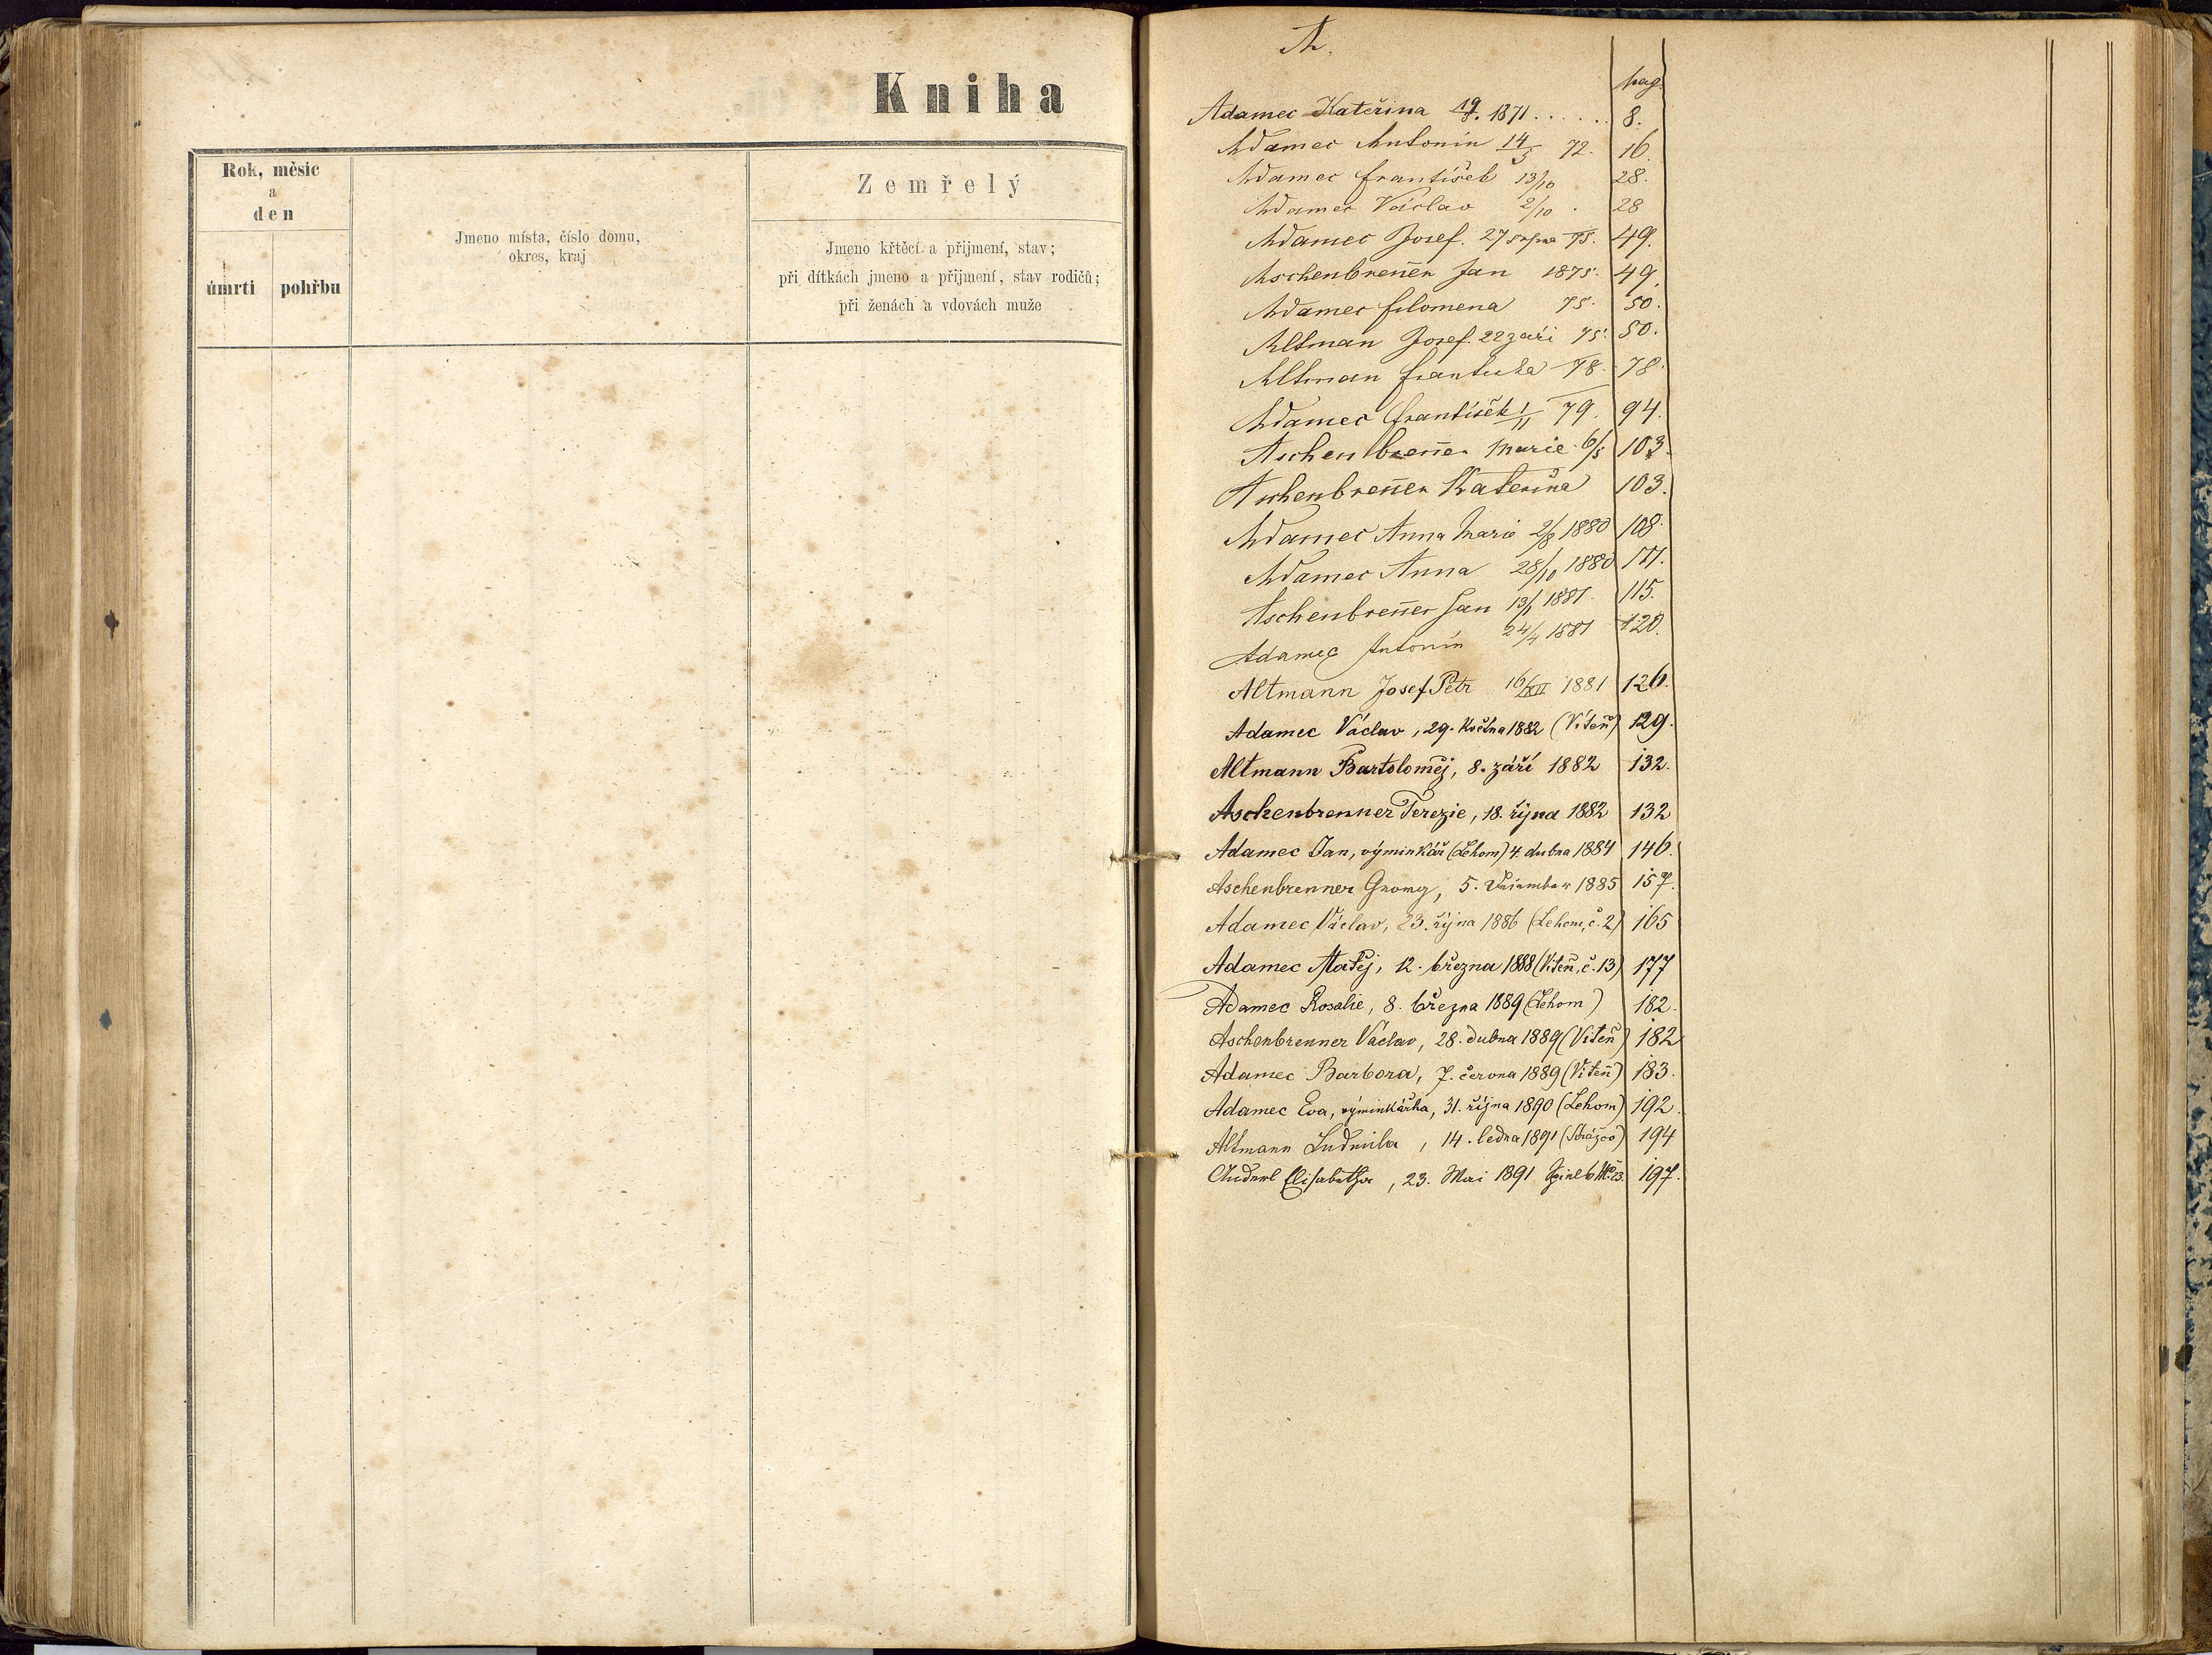 Kniha
Rok, měsíc
a
den
úmrti
pohřbu
Jmeno místa, číslo domu,
okres, kraj
Zemřelý
Jmeno křtěcí a přijmení, stav;
při dítkách jmeno a přijmení, stav rodičů;
při ženách a vdovách muže
A.
pag.
Adamec Kateřina 19/8. 1871...... 8.
Adamec Antonín 14/5 72. 16.
Adamec František 13/10 28.
Adamec Václav 2/10. 28
Adamec Josef. 27 srpna 75. 49.
Aschenbrenner Jan 1875. 49.
Adamec filomena 75. 50.
Altman Josef. 22 září 75. 50.
Altman františka 78. 78.
Adamec František 1/11 79. 94.
Aschenbrenner Marie 6/5 103.
Aschenbrenner Kateřina 103.
Adamec Anna Marie 2/8 1880 108.
Adamec Anna 28/10 1880 111.
Aschenbrenner Jan 13/1 1881. 115.
Adamec Antonín 24/4 1881 120.
Altmann Josef Petr 16/XII 1881 126.
Adamec Václav, 29. května 1882 (Viteň) 129.
Altmann Bartolomĕj, 8. září 1882 132.
Aschenbrenner Terezie, 18. října 1882 132
Adamec Jan, výminkář (Lehom) 4. dubna 1884 146.
Aschenbrenner Georg, 5. 1885 157.
Adamec Václav, 23. října 1886 (Lehom, č. 2) 165
Adamec Matěj, 12. března 1888 (Viteň, č. 13) 177
Adamec Rosalie, 8. března 1889 (Lehom) 182.
Aschenbrenner Václav, 28. dubna 1889 (Viteň) 182
Adamec Barbora, 7. června 1889 (Viteň) 183.
Adamec Eva, výminkářka, 31. října 1890 (Lehom) 192.
Altmann Ludmila, 14. ledna 1891 (Strážov) 194
Elisabetha, 23. Mai 1891 197.